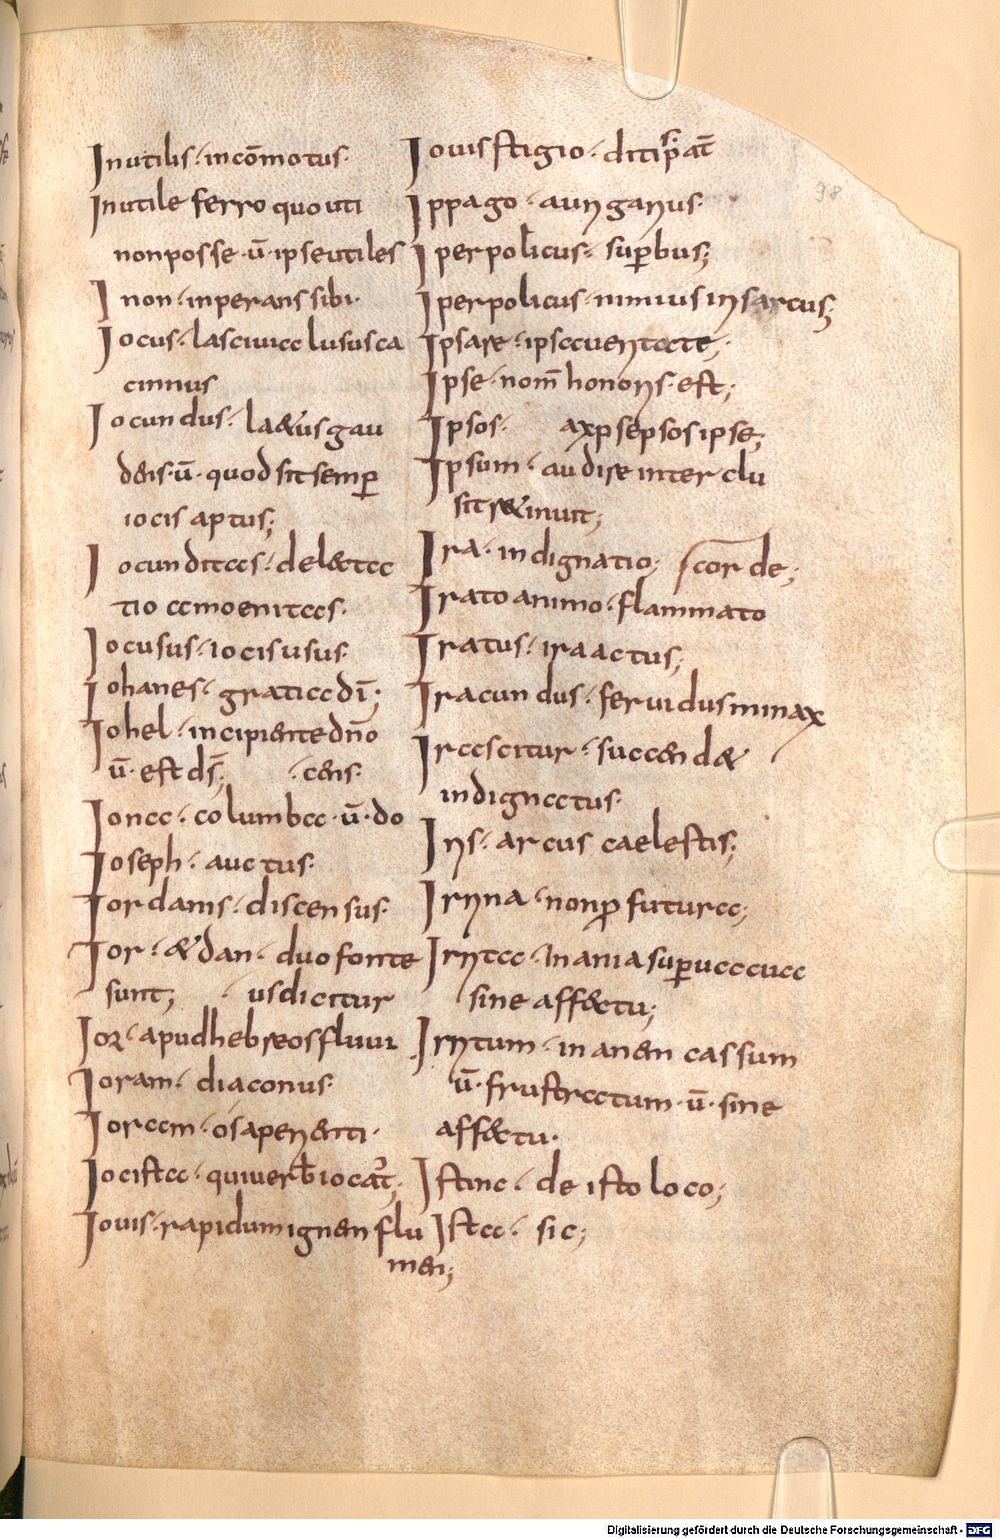 Inutilis · incōmotus·
Inutile ferro quo uti
non posse · ū · ipse utiles
I non · inperans sibi·
Iocus · lasciuia lusus ca
cinnus
Iocundus · laetus gau
dens · ū · quod sit semper
iocis aptus;
Iocunditas · delecta
tio amoenitas·
Iocusus · iocis usus·
Iohanes · gratia dī;
Iohel · incipiente dn̄o
ū · est ds̄; · ens·
Iona · columba · ū · do
Ioseph · auctus·
Iordanis · discensus·
Ior · et dan · duo fonte
sunt; · us dicitur
Ior · apud hebreos fluui
Ioram · diaconus·
Ioram ·
Iocista · qui uerb̄ iocat̄;
Iouis · rapidum ignem flu
men;
Iouis stigio ·
Ippago ·
Iperpolicus · sup̄bus;
Iperpolicus · nimius
Ipsare ·
Ipse · nom̄ honoris · est;
Ipsos · ipse;
Ipsum · audire inter clu
sit
Ira · indignatio; corde;
Irato animo · flammato
Iratus · ira actus;
Iracundus · feruidus minax
Irascitur · succendet
indignatus·
Iris · arcus caelestis;
Irrina · non p̄ futura;
Irrita · inania sup̄uacua
sine affectu;
Irritum · inanem cassum
ū · frustratum · ū · sine
affectu·
Istinc · de isto loco;
Ista · sic;
98
Digitalisierung gefördert durch die Deutsche Forschungsgemeinschaft - DFG